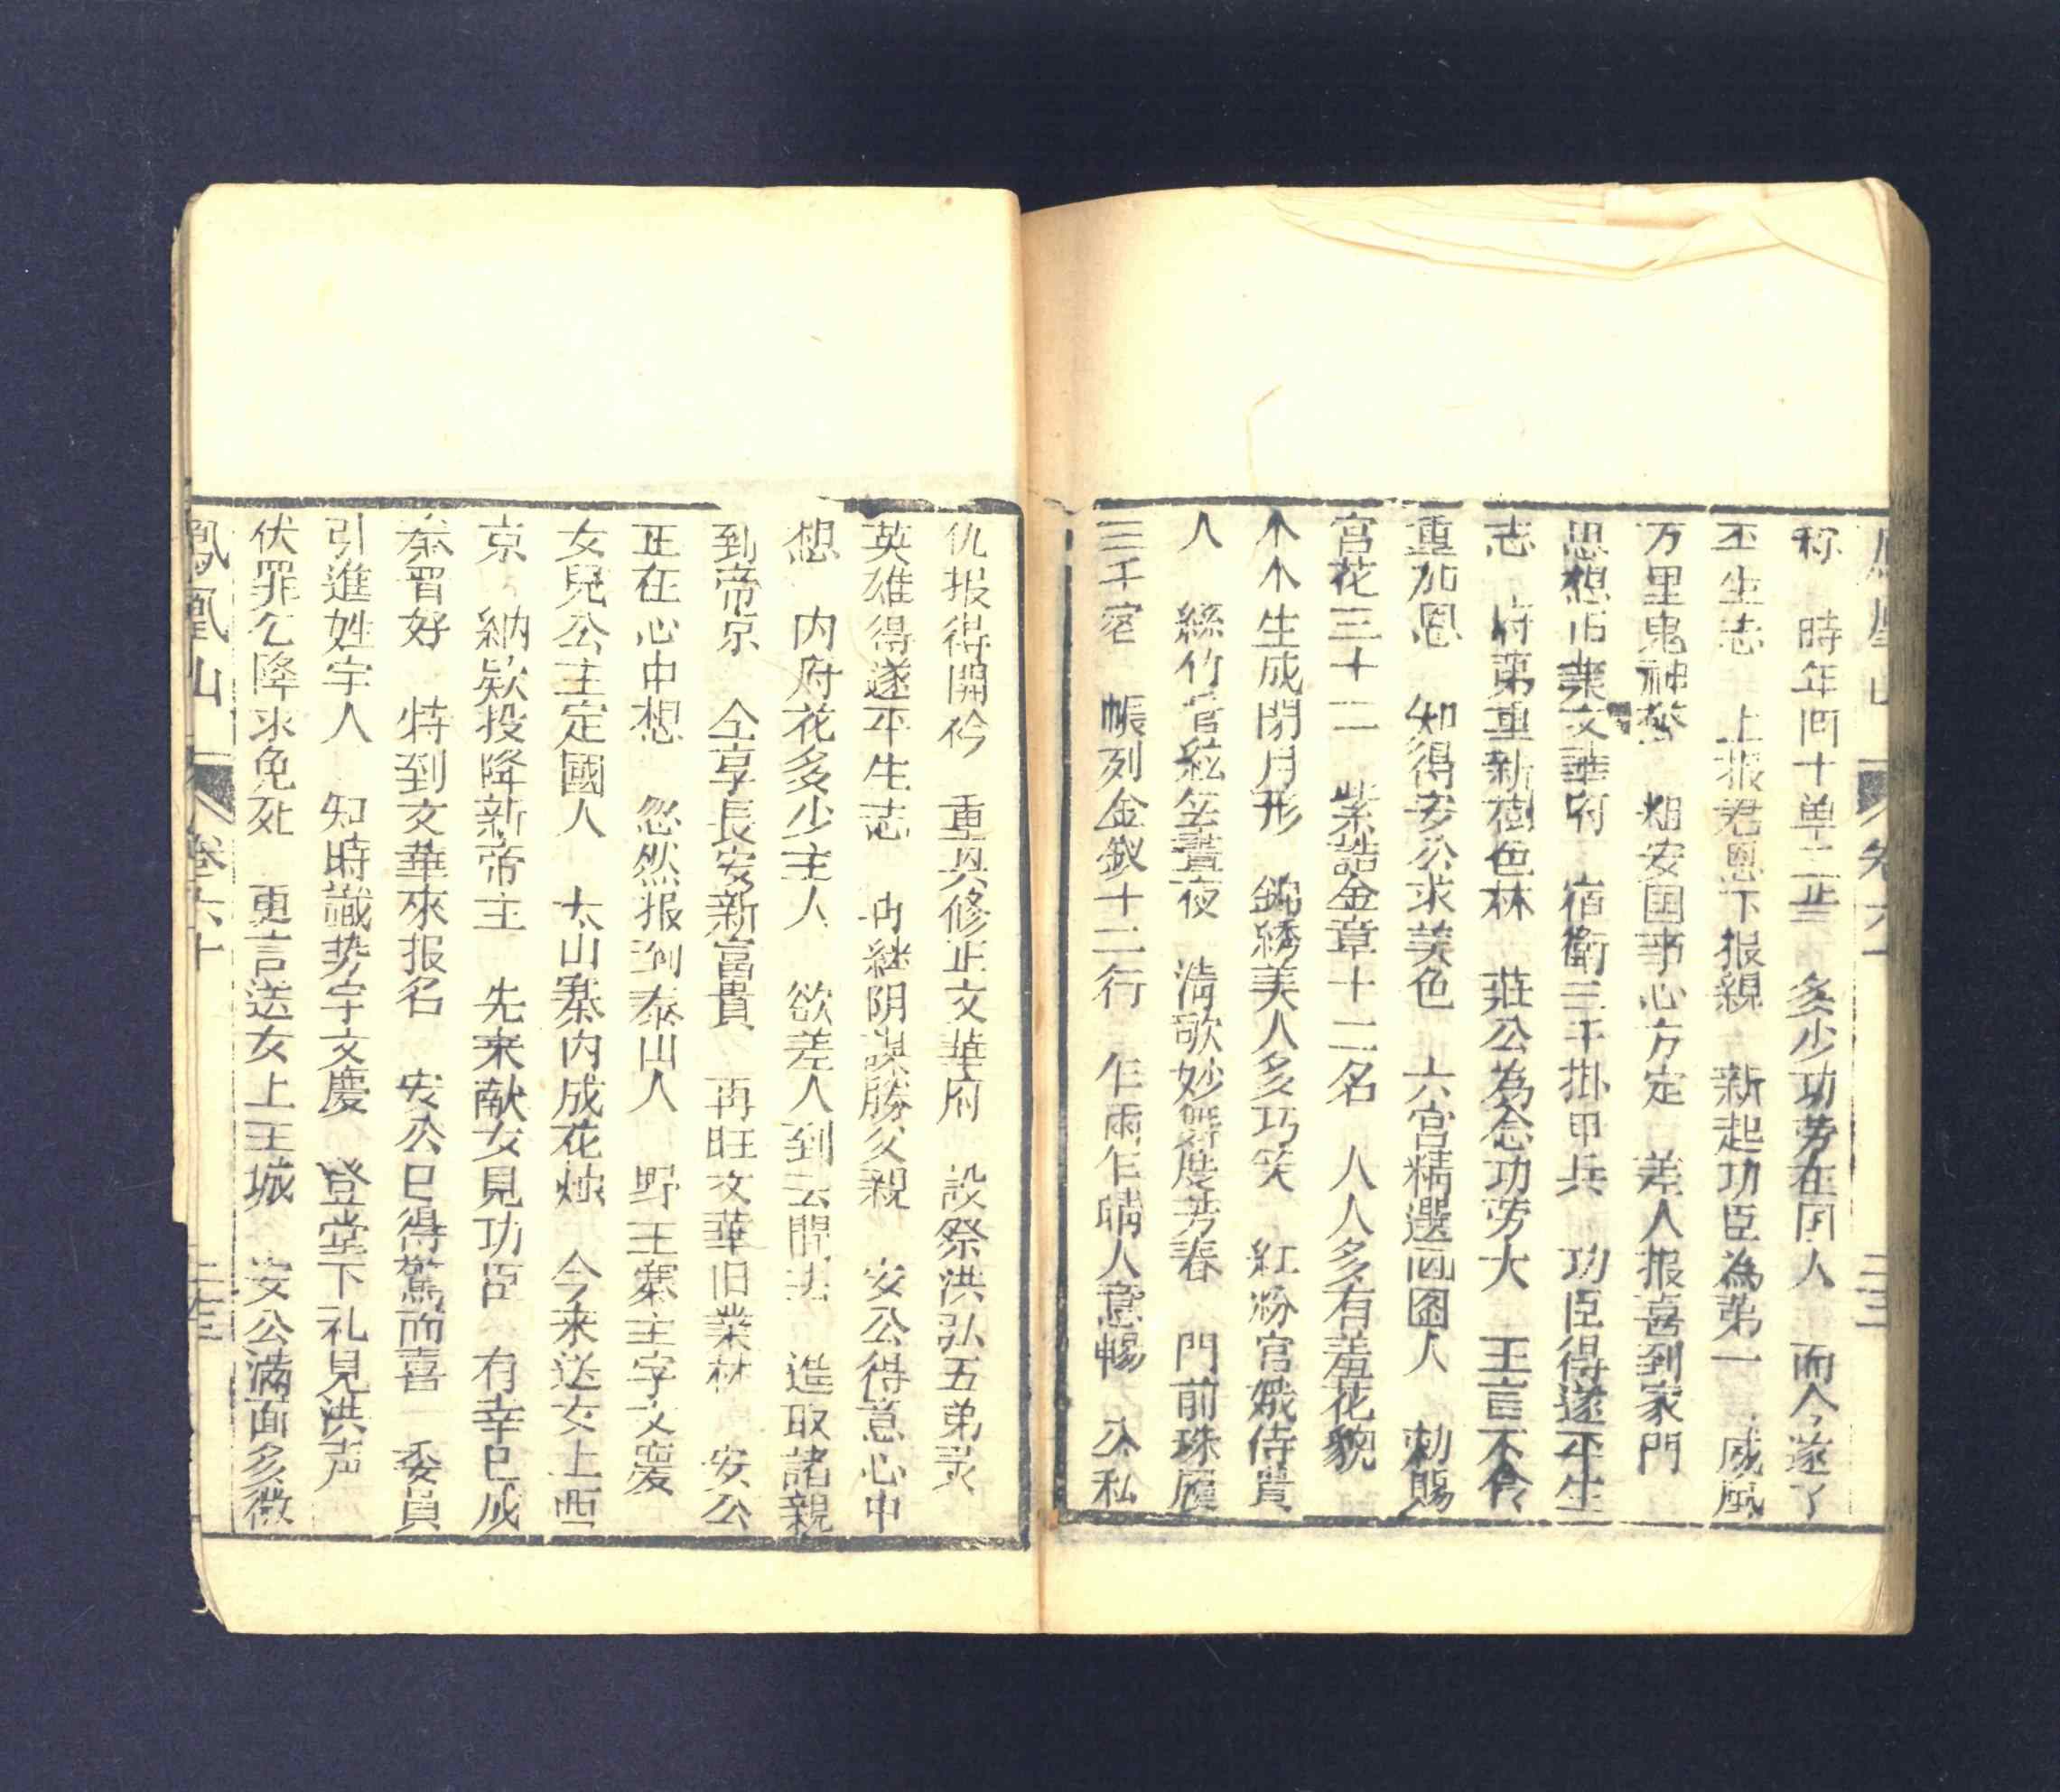 鳳凰山 卷六十 二三
称 時年囬十単二歩 多少功劳在囯人 而今遂了
丕生志 上报君恩下报親 新起功臣為第一 威風
万里鬼神愁 烟安囯事心方定 差人报喜到家門
思想旧業文華府 宿衛三千掛甲兵 功臣得遂平生
志 府第重新樹色林 莊公為念功劳大 王言不食
重加恩 知得安公求美色 六宮精選画圖人 勅賜
宮花三十二 紫誥金章十二名 人人多有羞花貌
个个生成閉月形 錦綉美人多巧笑 紅粉宮娥侍貴
人 絲竹管絃笙晝夜 清歌妙舞度芳春 門前珠履
三千客 帳列金釵十二行 乍雨乍晴人意暢 公私
仇报得開衿 重具修正文華府 設祭洪弘五弟灵
英雄得遂平生志 内継阴謀勝父親 安公得意心中
想 内府花多少主人 欲差人到云間去 進取諸親
到帝京 仝享長安新富貴 再旺文華旧業林 安公
正在心中想 忽然报到泰山人 野王寨主宇文慶
女兒公主定國人 太山寨内成花烛 今来送女上西
京 納欵投降新帝主 先来献女見功臣 有幸已成
秦晋好 特到文華來报名 安公巳得驚而喜 委員
引進姓宇人 知時識势宇文慶 登堂下礼見洪声
伏罪乞降求免死 更言送女上王城 安公滿面多微
鳳凰山 卷六十 二三